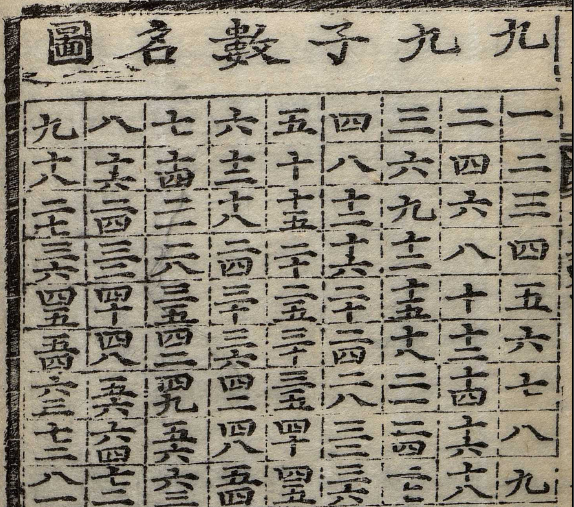 九九子數名圖
一 二 三 四 五 六 七 八 九
二 四 六 八 十 十二 十四 十六 十八
三 六 九 十二 十五 十八 二一 二四 二七
四 八 十二 十六 二十 二四 二八 三二 三六
五 十 十五 二十 二五 三十 三五 四十 四五
六 十二 十八 二四 三十 三六 四二 四八 五四
七 十四 二一 二八 三五 四二 四九 五六 六三
八 十六 二四 三二 四十 四八 五六 六四 七二
九 十八 二七 三六 四五 五四 六三 七二 八一